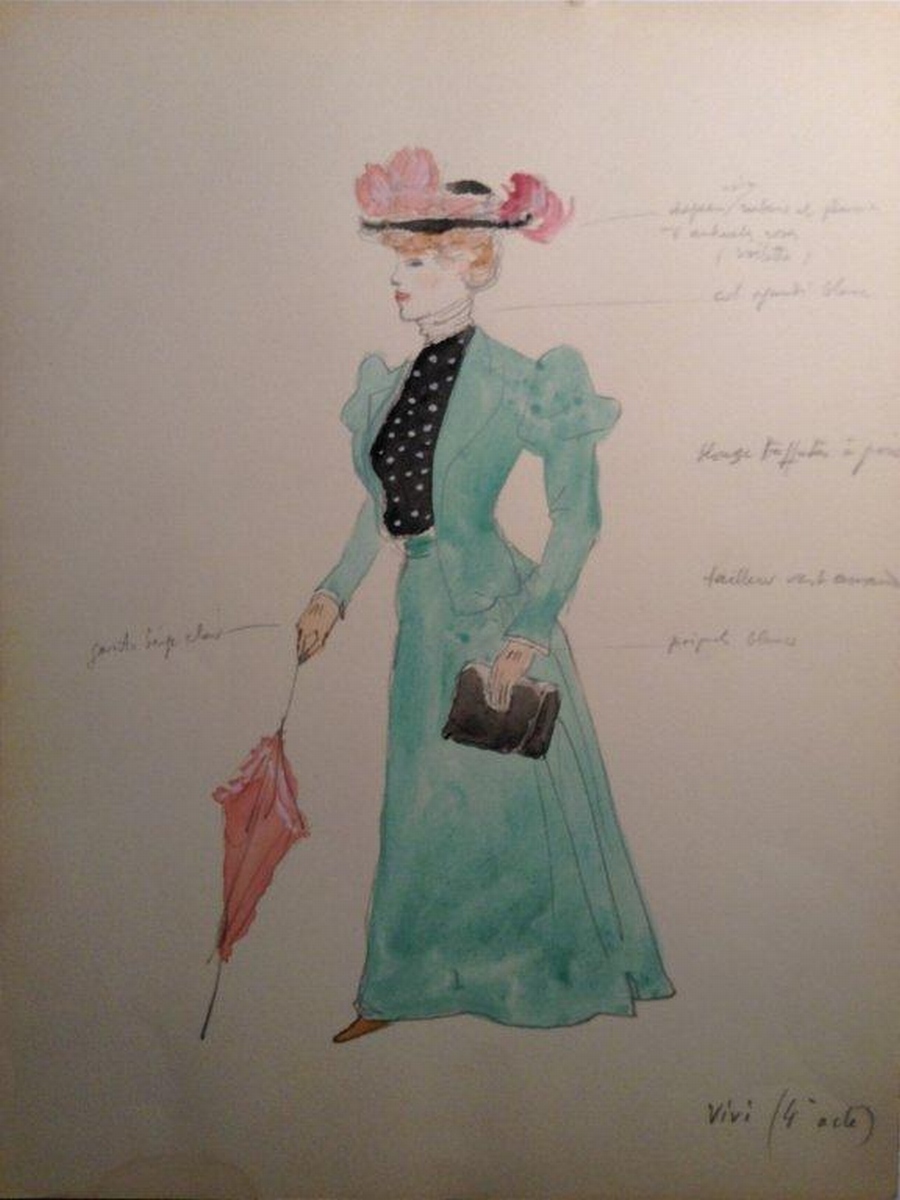 noir
chapeau/rubans et plumes
rose
(voilette)
col organdi blanc
blouse taffetas à pois
tailleur vert amande
gants beige clair
poignets blancs
Vivi (4e acte)